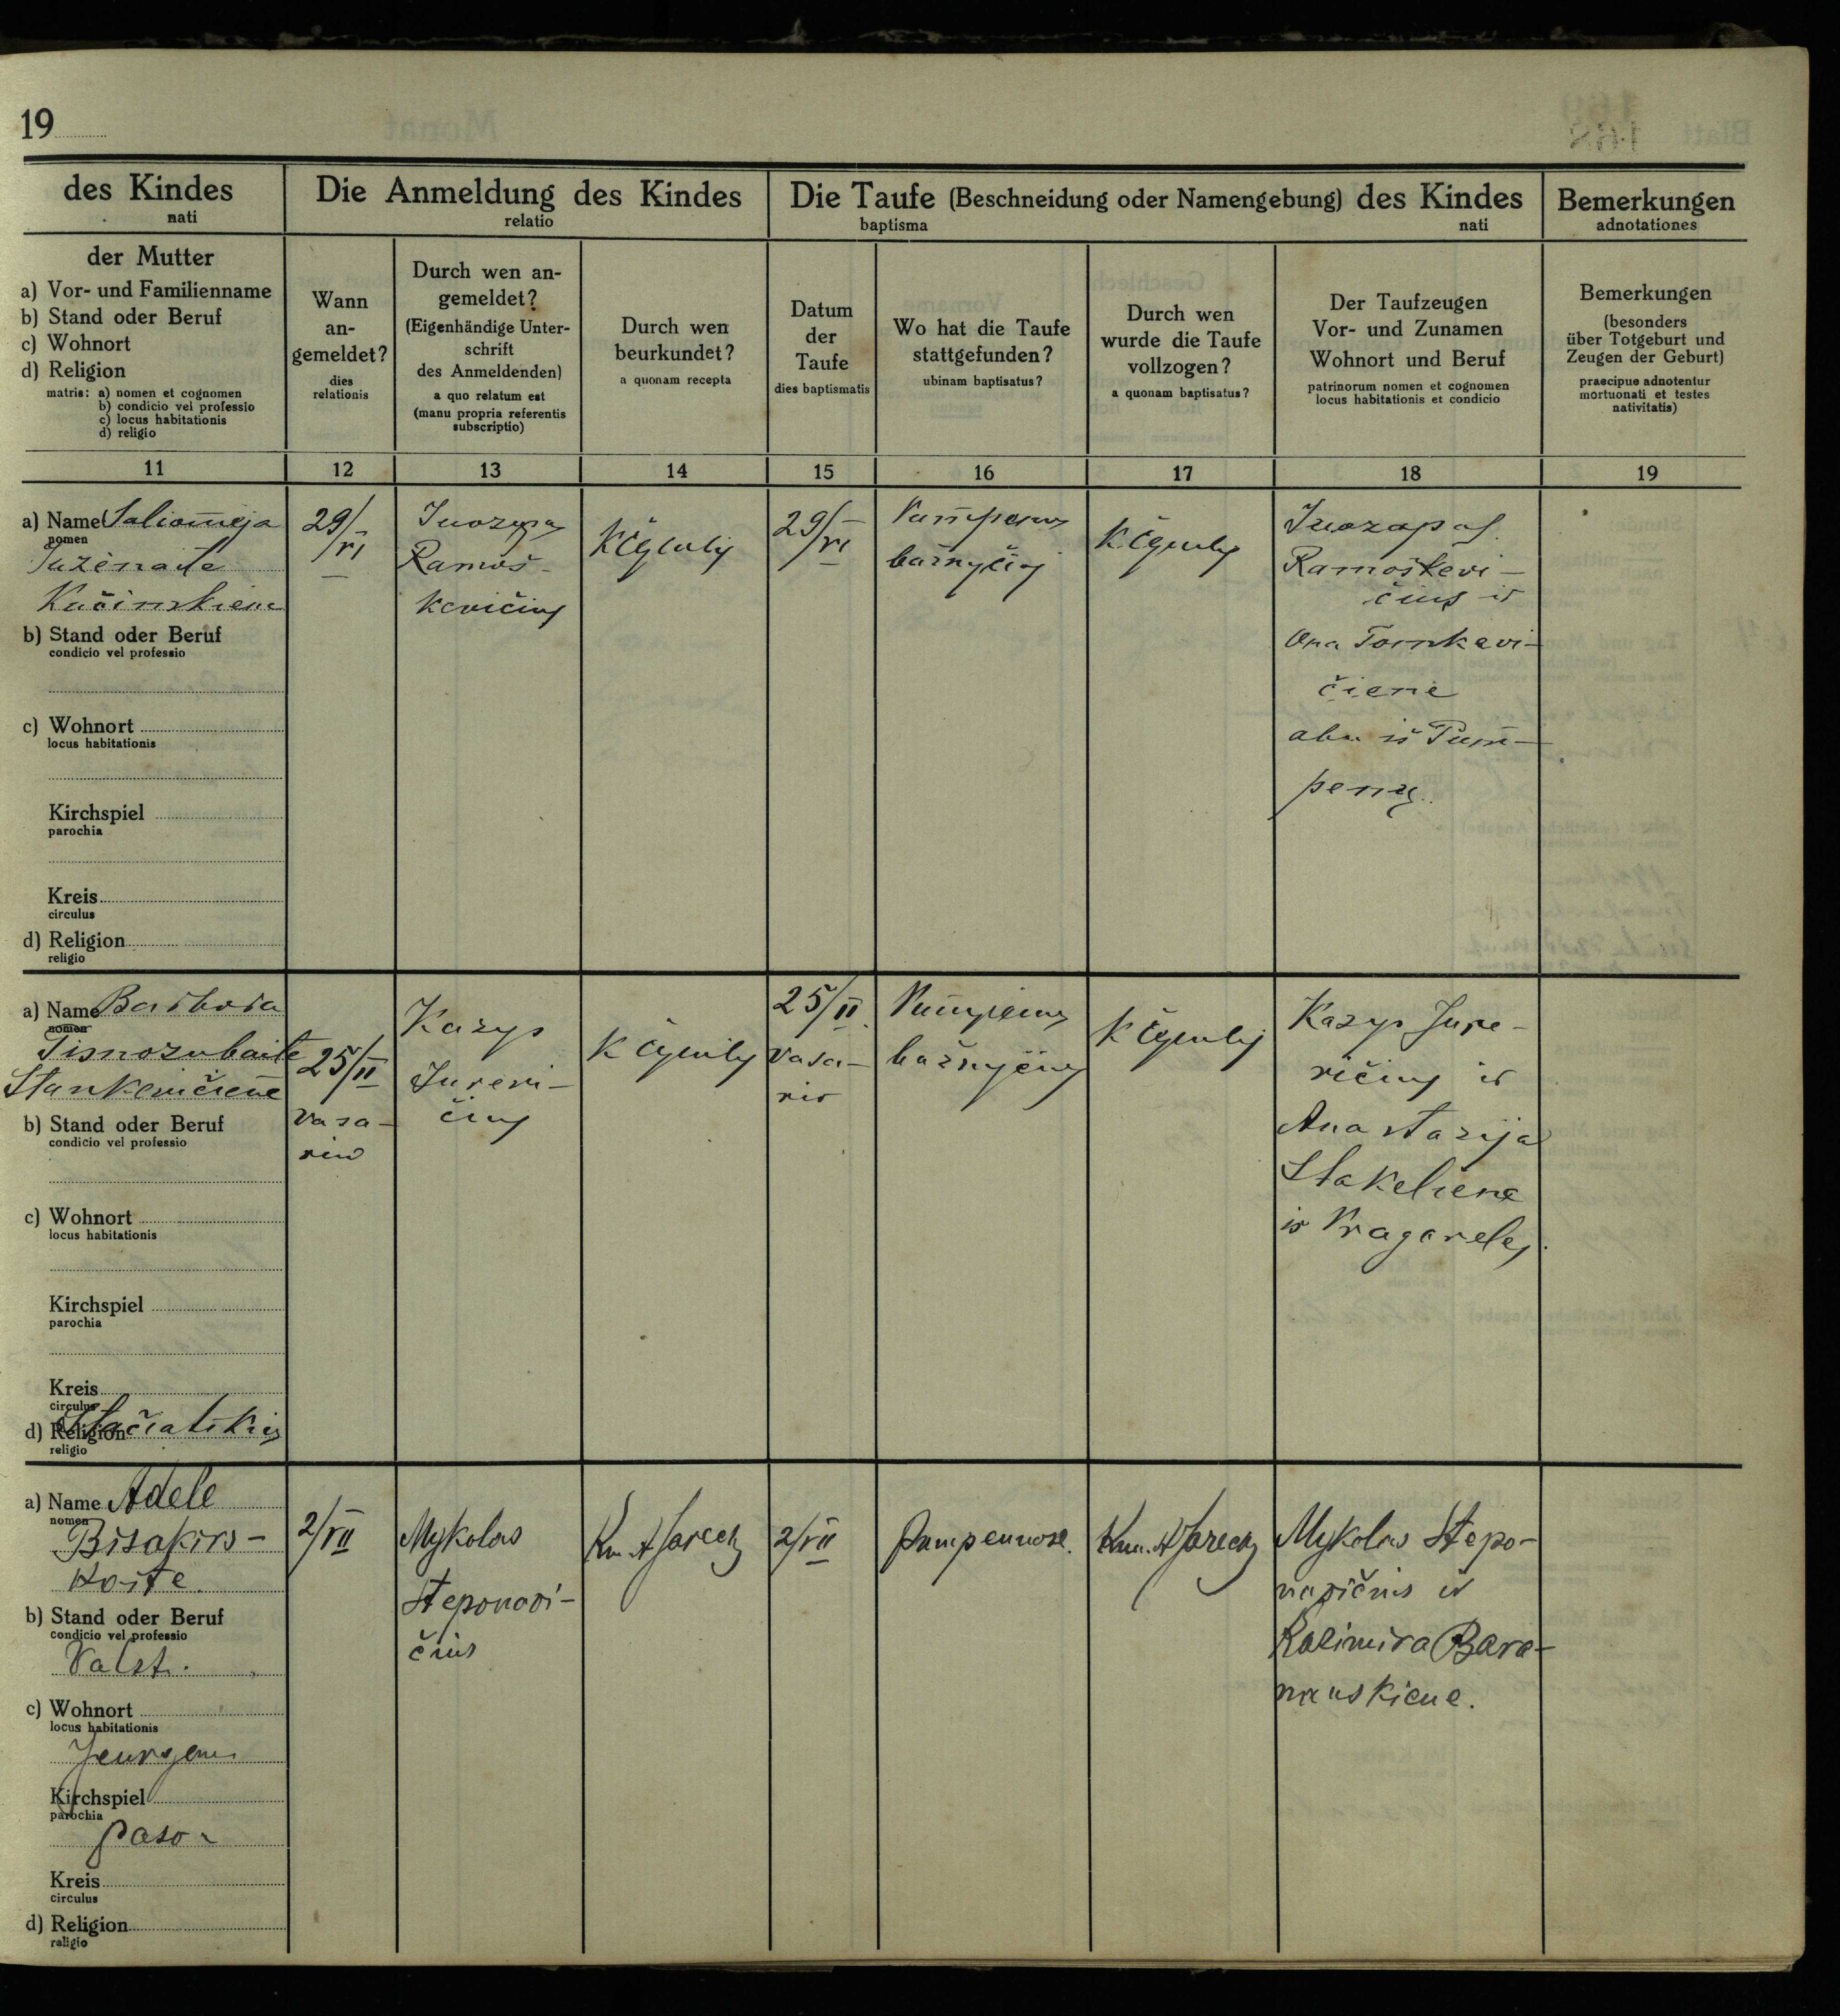 19
des Kindes
nati
Die Anmeldung des Kindes
relatio
Die Taufe (Beschneidung oder Namengebung) des Kindes
baptisma nati
Bemerkungen
adnotationes
der Mutter
a) Vor- und Familienname
b) Stand oder Beruf
c) Wohnort
d) Religion
matris: a) nomen et cognomen
b) condicio vel professio
c) locus habitationis
d) religio
Wann
an-
gemeldet?
dies
relationis
Durch wen an-
gemeldet?
(Eigenhändige Unter-
schrift
des Anmeldenden)
a quo relatum est
(manu propria referentis
subscriptio)
Durch wen
beurkundet?
a quonam recepta
Datum
der
Taufe
dies baptismatis
Wo hat die Taufe
stattgefunden?
ubinam baptisatus?
Durch wen
wurde die Taufe
vollzogen?
a quonam baptisatus?
Der Taufzeugen
Vor- und Zunamen
Wohnort und Beruf
patrinorum nomen et cognomen
locus habitationis et condicio
Bemerkungen
(besonders
über Totgeburt und
Zeugen der Geburt)
praecipue adnotentur
mortuonati et testes
nativitatis)
11 12 13 14 15 16 17 18 19
a) Name Saliomėja
nomen
Kučinskiene
b) Stand oder Beruf
condicio vel professio
c) Wohnort
locus habitationis
Kirchspiel
parochia
Kreis
circulus
d) Religion
religio
29/VI
Juozapas
Ramoš-
kevičius
29/VI
bažnyčioj
Juozapas
Ramoškevi-
čius ir
Ona Tomkevi-
čiene
abu iš Pum-
penų
a) Name Barbora
nomen
Stankevičiene
b) Stand oder Beruf
condicio vel professio
c) Wohnort
locus habitationis
Kirchspiel
parochia
Kreis
circulus
d) Religion
religio
25/II
vasa-
rio
Kazys
Jurevi-
čius
25/II
vasa-
rio
Kazys Jure-
vičius ir
Anastazija
Stakeliene
a) Name Adele
nomen
b) Stand oder Beruf
condicio vel professio
Valst.
c) Wohnort
locus habitationis
Kirchspiel
parochia
Kreis
circulus
d) Religion
religio
2/VII
Mykolas
Steponavi-
čius
2/VII
Pumpenuose.
Mykolas Stepo-
navičius ir
Kazimira Bara-
nauskiene.